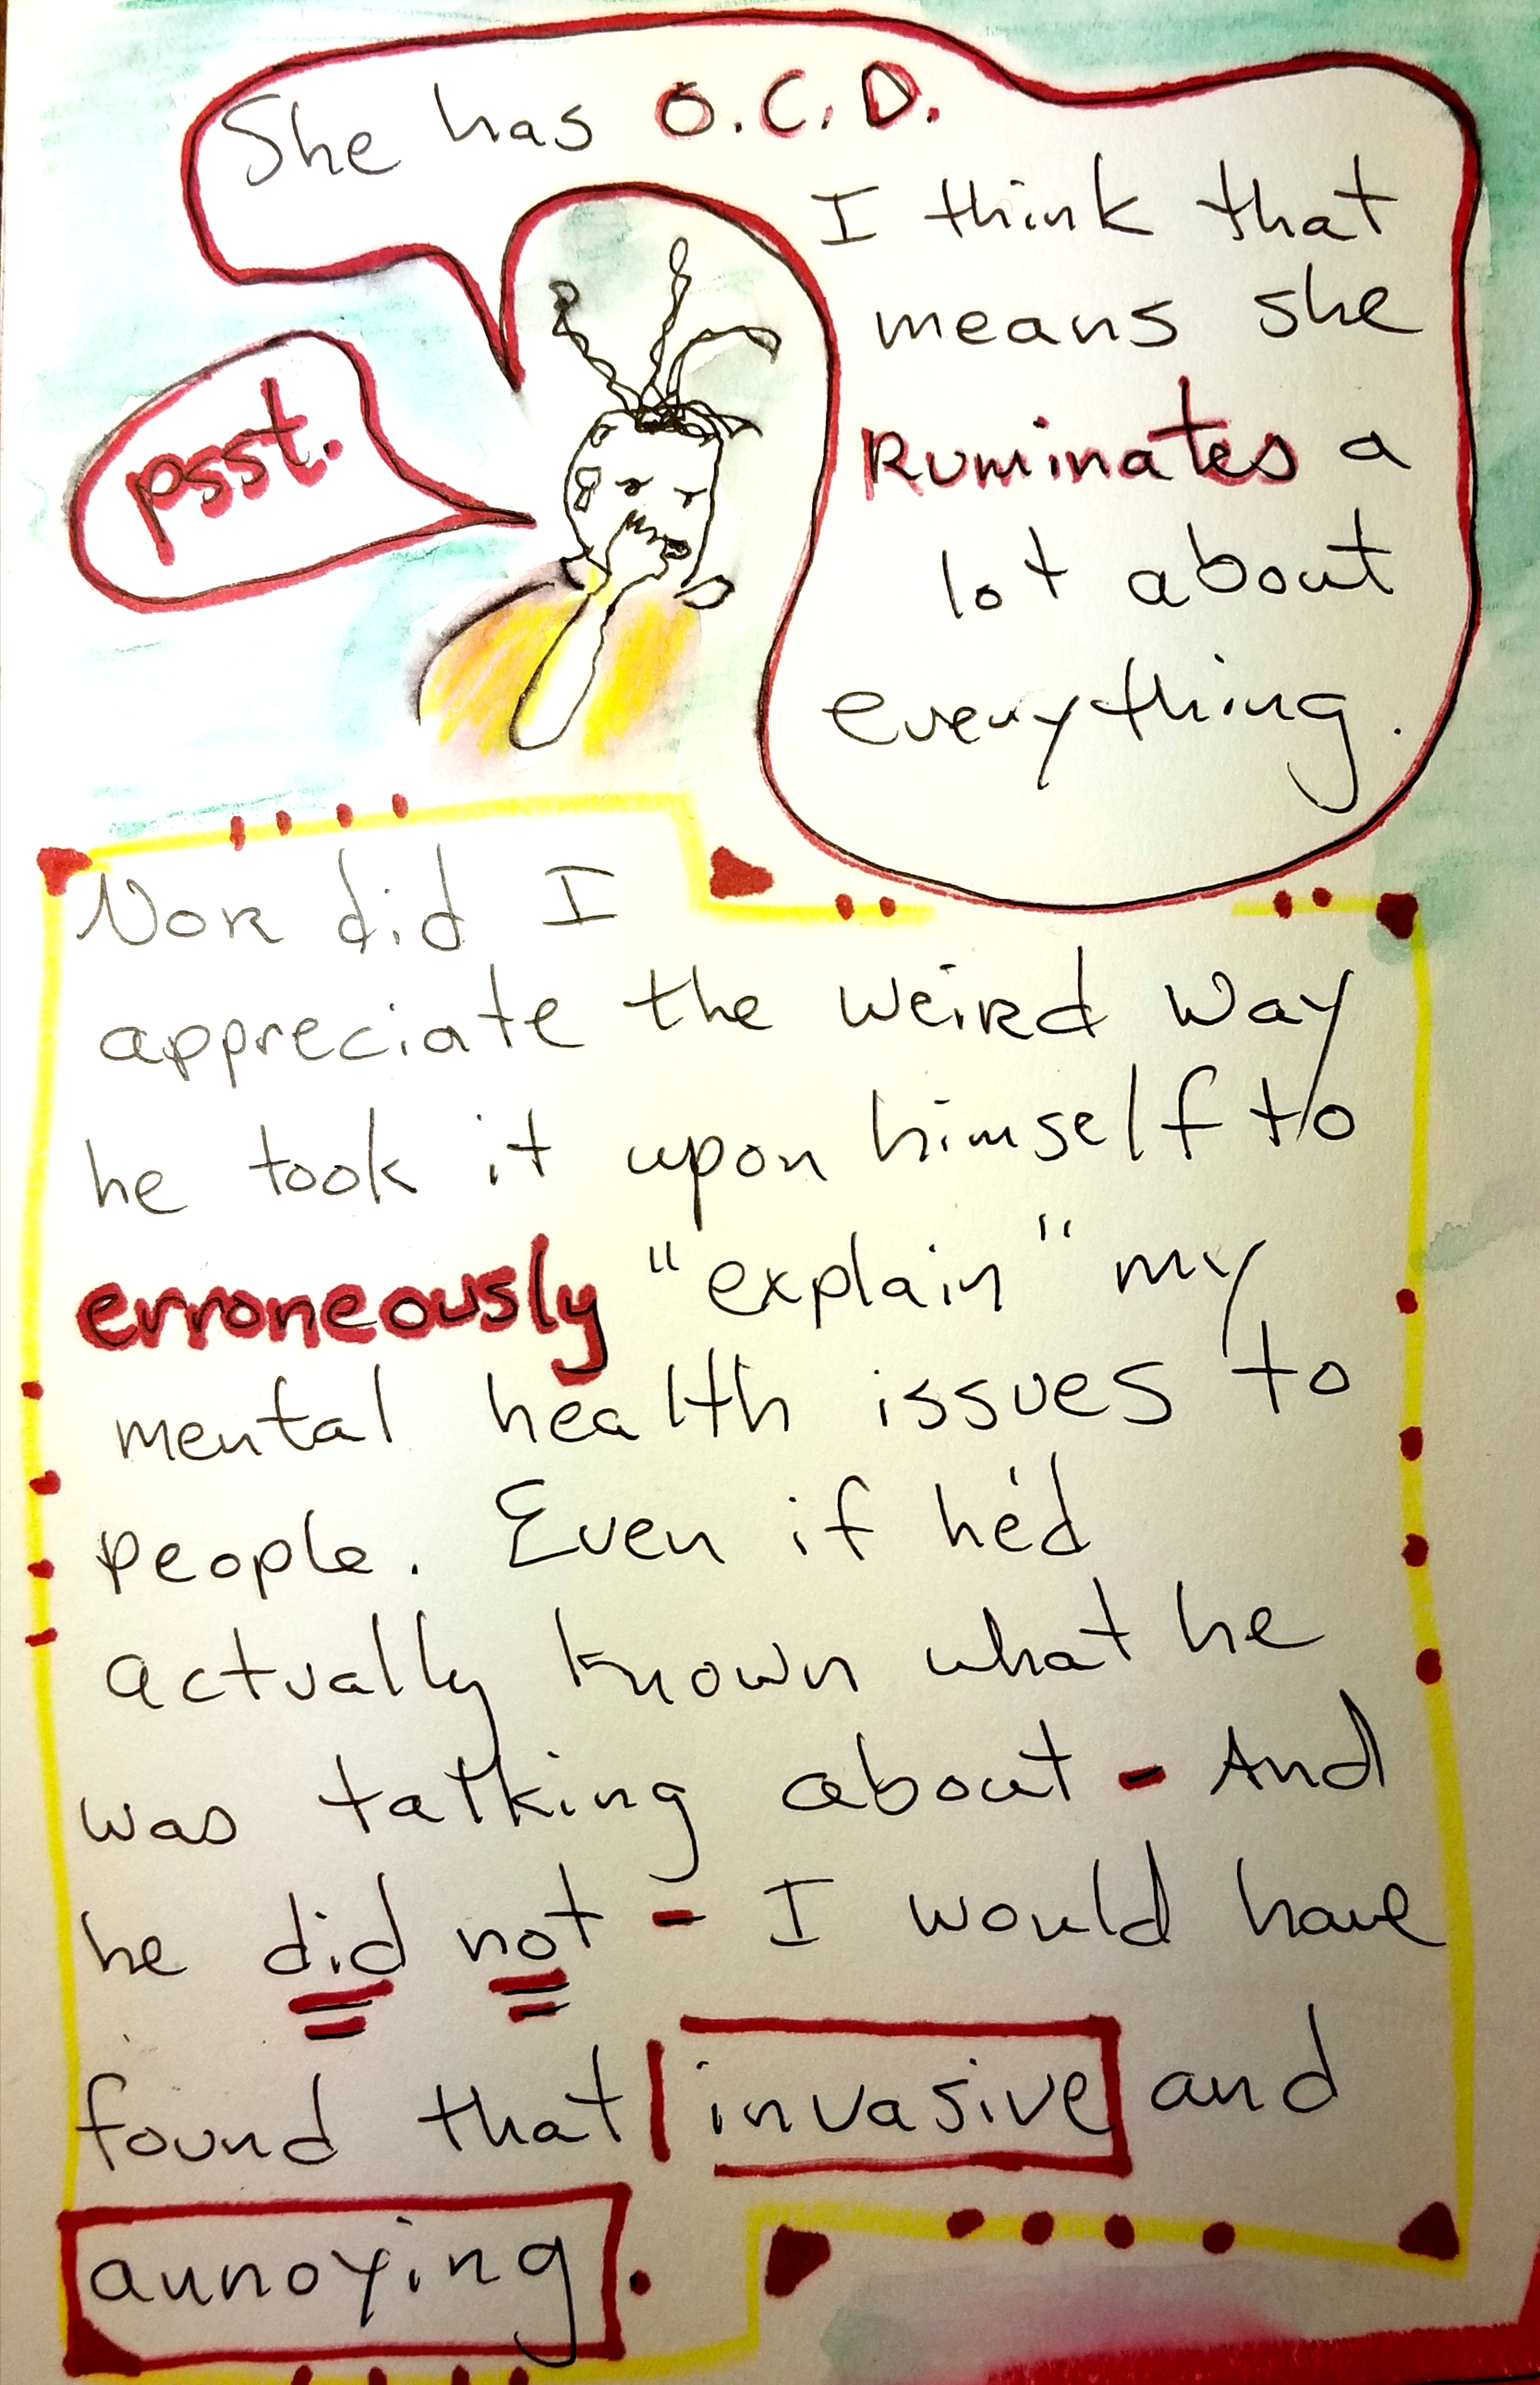 She has O.C.D.
I think that
means she
Ruminates a
lot about
everything.
psst.
Nor did I
appreciate the weird way
he took it upon himself to
erroneously "explain" my
mental health issues to
people. Even if he'd
actually known what he
was talking about - And
he did not - I would have
found that invasive and
annoying.